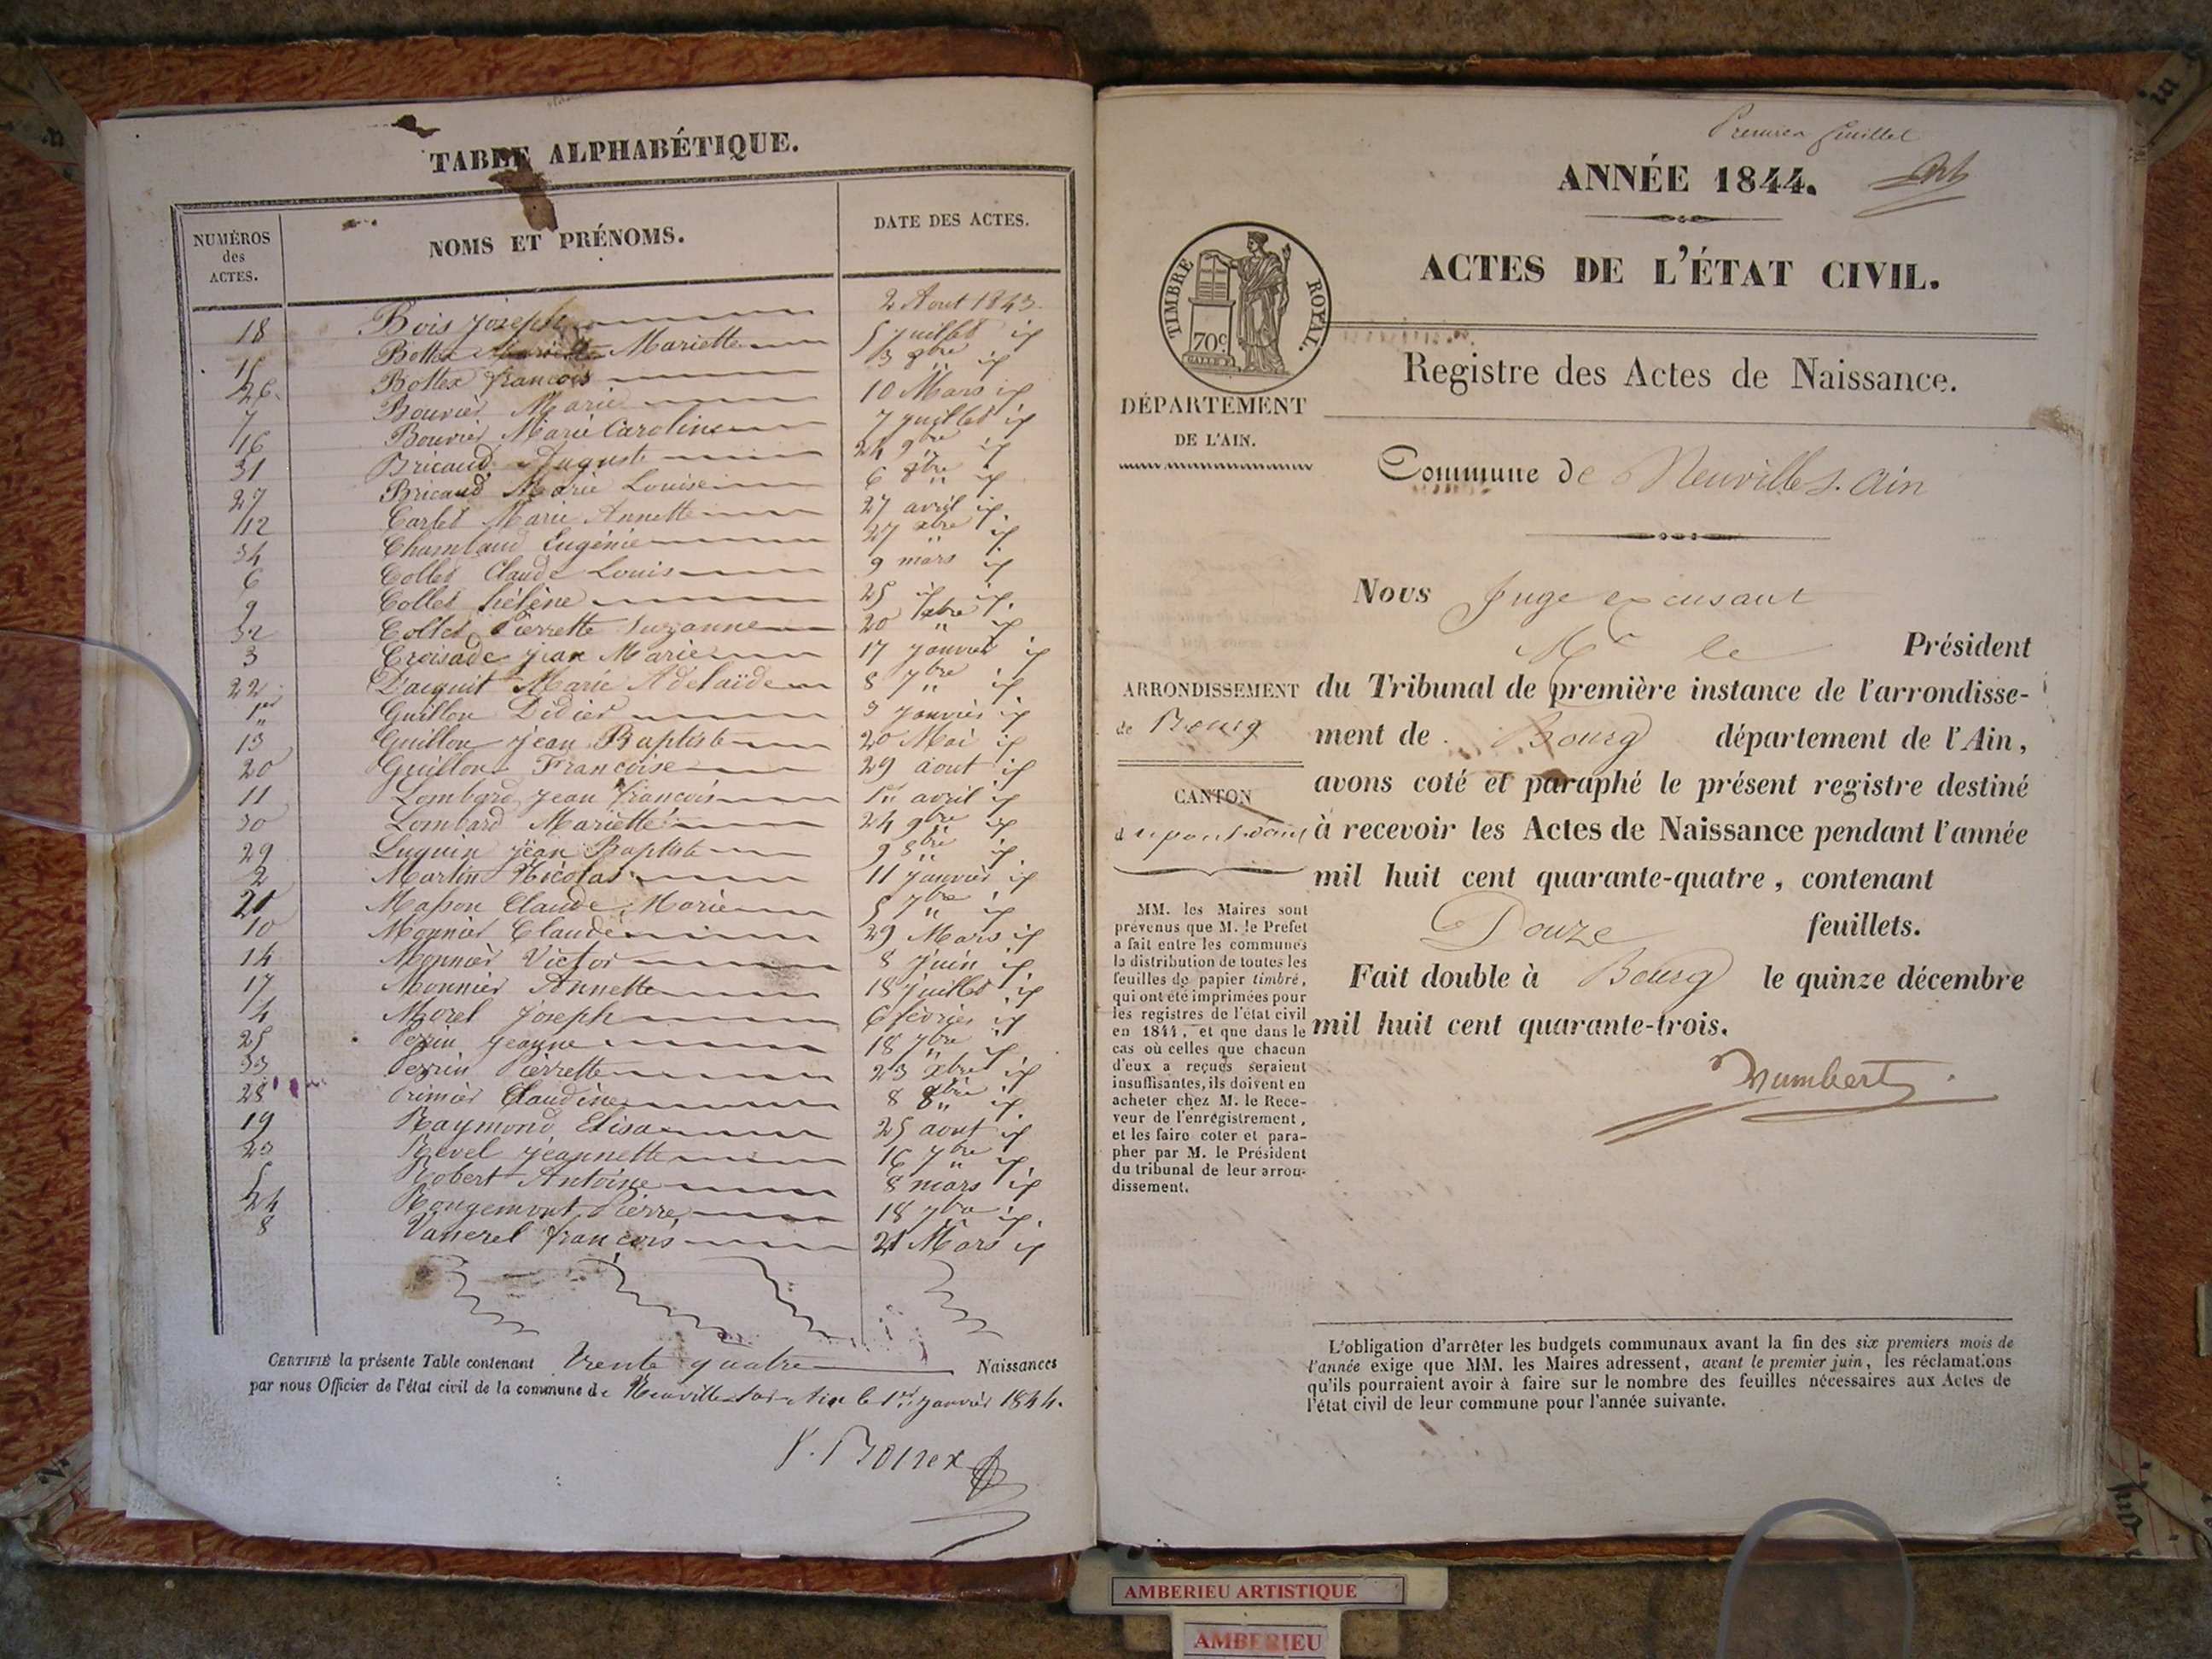 TABLE ALPHABÉTIQUE.
NUMÉROS
des
ACTES.
NOMS ET PRÉNOMS.
DATE DES ACTES.
18 Bois Joseph 2 Aout 1843
15 Bottex Mariette 5 juillet id
26 Bottex françois 3 8bre id
7 Bouvier Marie 10 Mars id
16 Bouvier Marie Caroline 7 juillet id
31 Bricaud Auguste 24 9bre id
27 Bricaud Marie Louise 6 8bre id
12 Carlet Marie Annette 27 avril id
34 Chambaud Eugénie 27 xbre id
6 Collet Claude Louis 9 mars id
9 Collet hélène 25 id id
32 Collet Pierrette Suzanne 20 id
3 Croisade Jean Marie 17 janvier id
22 Dacquit Marie Adelaïde 8 7bre id
1er Guillon Didier 3 janvier id
13 Guillon Jean Baptiste 20 Mai id
20 Guillon Françoise 29 aout id
11 Lombard Jean françois avril id
30 Lombard Mariette 24 9bre id
29 Luquin Jean Baptiste 9 8bre id
2 Martin Nicolas 11 janvier id
21 Masson Claude Marie 5 7bre id
10 Monnier Claude 29 Mars id
14 Monnier Victor 8 juin id
17 Monnier Annette 18 juillet id
4 Morel Joseph 6 février id
25 Perrin Jeanne 18 7bre id
33 Perrin Pierrette 23 xbre id
28 Primier Claudine 8 8bre id
19 Raymond Elisa 25 aout id
23 Revel Jeannette 16 7bre id
5 Robert Antoine 8 mars id
24 Rougemont Pierre 18 7bre id
8 Vanerel françois 21 Mars id
CERTIFIÉ la présente Table contenant trente quatre Naissances
par nous Officier de l'état civil de la commune de Neuville sur Ain le 1er janvier 1844.
Premier feuillet
ANNÉE 1844.
ACTES DE L'ÉTAT CIVIL.
TIMBRE ROYAL.
70c
Registre des Actes de Naissance.
DÉPARTEMENT
DE L'AIN.
Commune de Neuville s. ain
Nous Juge excusant
Mr le Président
ARRONDISSEMENT
de Bourg
CANTON
du pont d'ain
du Tribunal de première instance de l'arrondisse-
ment de Bourg département de l'Ain,
avons coté et paraphé le présent registre destiné
à recevoir les Actes de Naissance pendant l'année
mil huit cent quarante-quatre, contenant
Douze feuillets.
Fait double à Bourg le quinze décembre
mil huit cent quarante-trois.
Humbert
MM. les Maires sont
prévenus que M. le Préfet
a fait entre les communes
la distribution de toutes les
feuilles de papier timbré,
qui ont été imprimées pour
les registres de l'état civil
en 1844, et que dans le
cas où celles que chacun
d'eux a reçues seraient
insuffisantes, ils doivent en
acheter chez M. le Rece-
veur de l'enregistrement,
et les faire coter et para-
pher par M. le Président
du tribunal de leur arron-
dissement.
L'obligation d'arrêter les budgets communaux avant la fin des six premiers mois de
l'année exige que MM. les Maires adressent, avant le premier juin, les réclamations
qu'ils pourraient avoir à faire sur le nombre des feuilles nécessaires aux Actes de
l'état civil de leur commune pour l'année suivante.
AMBERIEU ARTISTIQUE
AMBERIEU